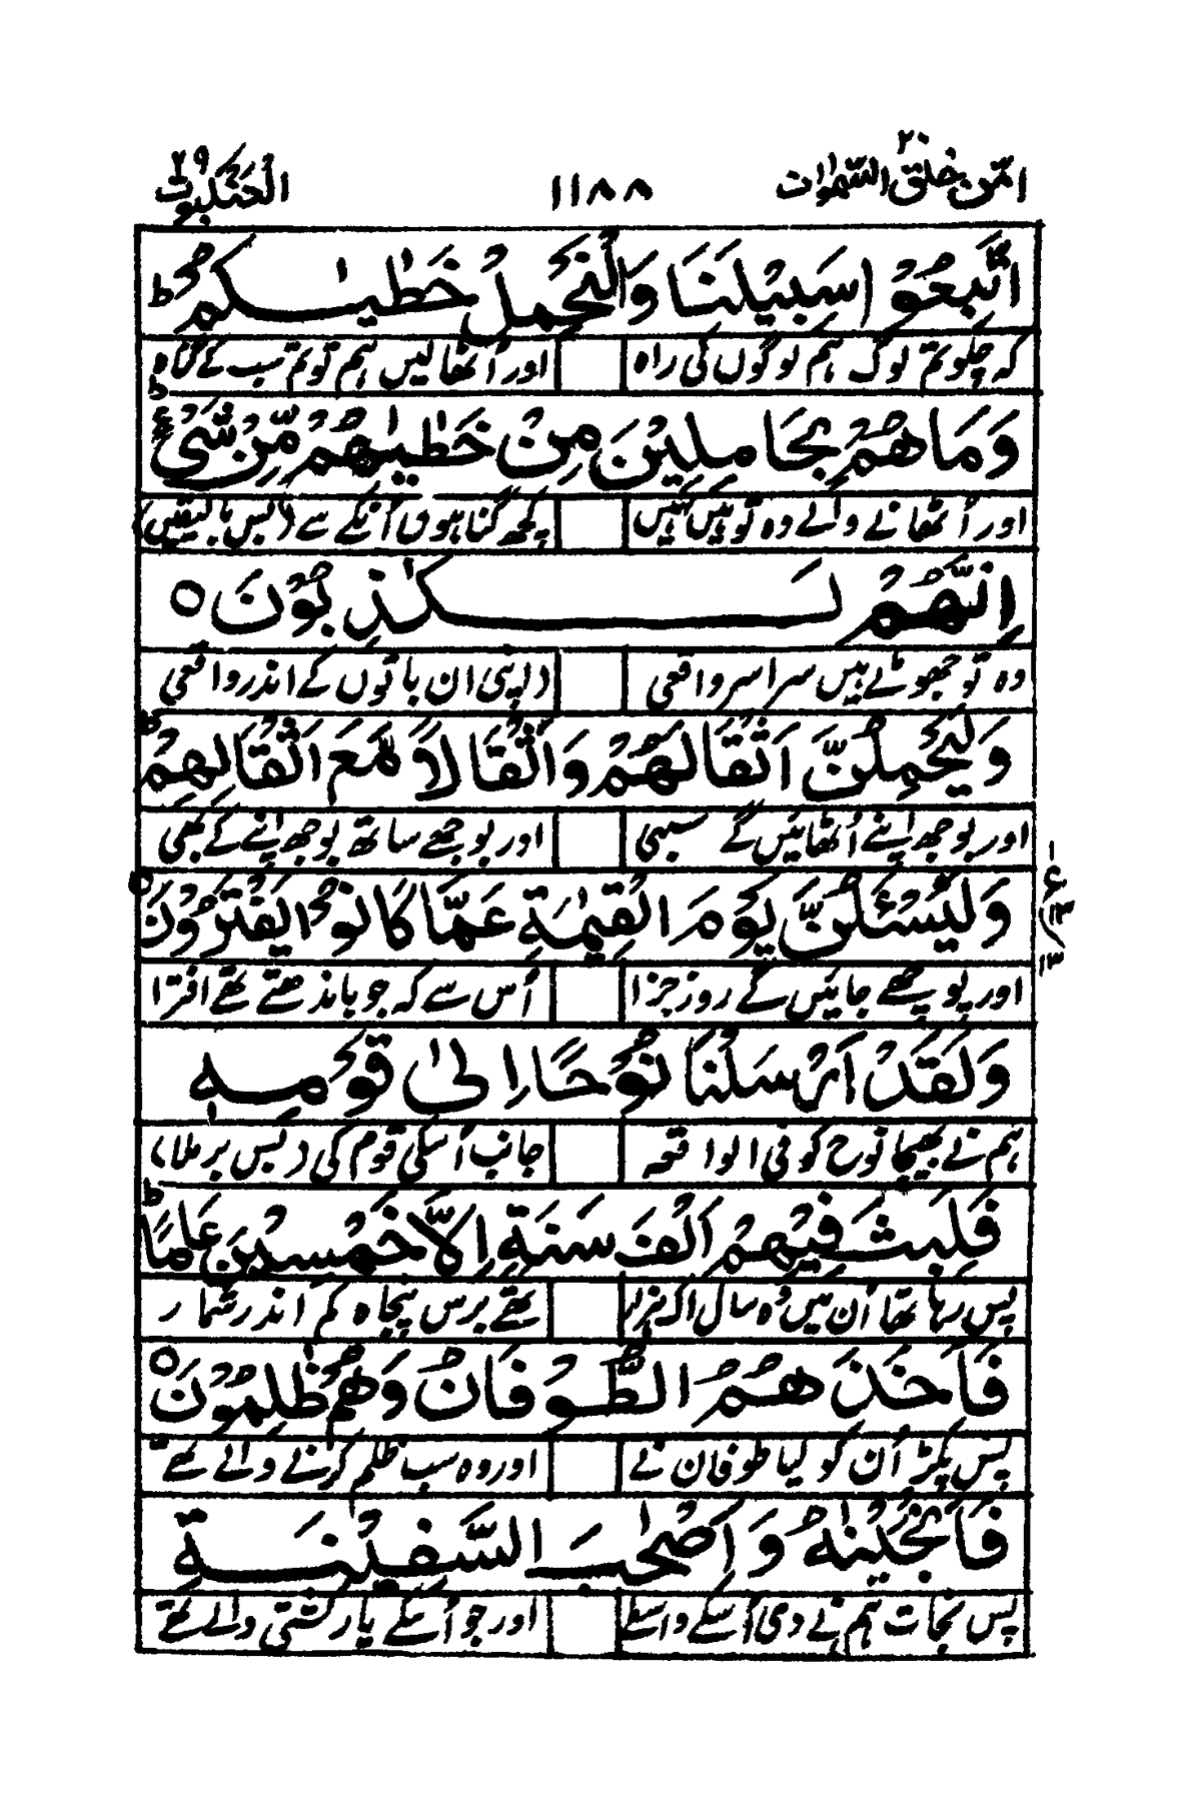 امّن خلق السّمٰوٰت ۲۰ ۱۱۸۸ العنکبوت ۲۹
اتَّبِعُوْا سَبِیْلَنَا وَلْنَحْمِلْ خَطٰیٰکُمْ ؕ
کہ چلو تم لوگ ہم لوگوں کی راہ اور اُٹھا لیں ہم تو تم سب کے گناہ
وَمَا هُمْ بِحَامِلِیْنَ مِنْ خَطٰیٰهُمْ مِّنْ شَیْءٍ ؕ
اور اُٹھانے والے وہ تو ہیں نہیں کچھ گناہوں اُنکے سے (بس بالیقیں)
اِنَّهُمْ لَکٰذِبُوْنَ ○
وہ تو جھوٹے ہیں سراسر واقعی (اپنی ان باتوں کے اندر واقعی
وَلَیَحْمِلُنَّ اَثْقَالَهُمْ وَاَثْقَالًا مَّعَ اَثْقَالِهِمْ ؗ
اور بوجھ اپنے اُٹھائیں گے سبھی اور بوجھے ساتھ بوجھ اپنے کے بھی
وَلَیُسْئَلُنَّ یَوْمَ الْقِیٰمَةِ عَمَّا کَانُوْا یَفْتَرُوْنَ ○
اور پوچھے جائیں گے روز جزا اُس سے کہ جو باندھتے تھے افترا
۱
ع
۱۳
۱۳
وَلَقَدْ اَرْسَلْنَا نُوْحًا اِلٰی قَوْمِهٖ
ہم نے بھیجا نوح کو فی الواقعہ جانب اُسکی قوم کی (بس برملا)
فَلَبِثَ فِیْهِمْ اَلْفَ سَنَةٍ اِلَّا خَمْسِیْنَ عَامًا ؕ
پس رہا تھا اُن میں وُہ سال اک ہزار تھے برس پچاہ کم اندر شمار
فَاَخَذَهُمُ الطُّوْفَانُ وَهُمْ ظٰلِمُوْنَ ○
پس پکڑ اُن کو لیا طوفان نے اور وہ سب ظلم کرنے والے تھے
فَاَنْجَیْنٰهُ وَاَصْحٰبَ السَّفِیْنَةِ
پس نجات ہم نے دی اُسکے واسطے اور جو اُسکے یار کشتی والے تھے